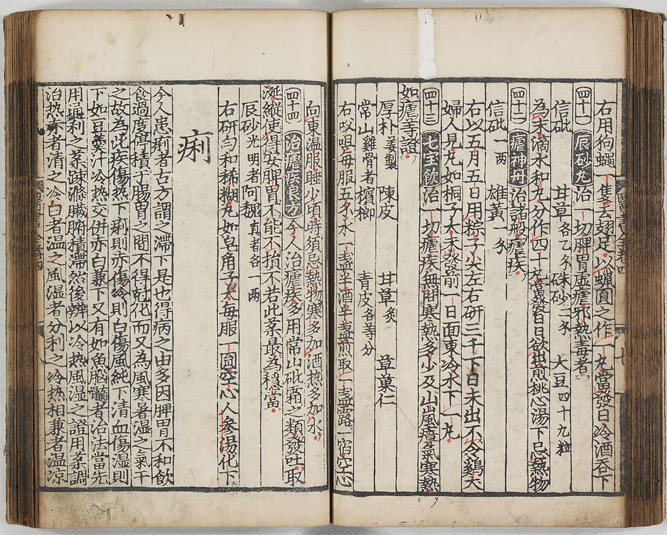 右用狗蠅一隻去翅足以蠟圓之作一丸當發日冷酒吞下
四十一 辰砂丸 治一切脾胃虛瘧邪熱毒者
信砒 甘草各乙分 硃砂二分 大豆四十九粒
為末滴水和丸分作四十九
信砒一兩 雄黃一分
四十二 瘧神丹 治諸般瘧疾
右以五月五日用粽子尖左右研三千下日未出不令雞犬
婦人見丸如桐子大未發前一日面東冷水下一丸
四十三 七宝飲 治一切瘧疾無問寒熱多少及山嵐瘴氣寒熱
如瘧等證
厚朴姜製 陳皮 甘草炙 草菓仁
常山雞骨者 檳榔 青皮各等分
右㕮咀每服五分水一盞酒半盞煎取一盞露一宿空心
向東温服睡少頃時須忌熱物寒多加酒熱多加水
四十四 治瘧疾良方 今人治瘧疾多用常山砒霜之類發吐取
涎縱使得安脾胃不能不損不若此葯最為穩當
辰砂光明者 阿魏真者各一兩
右研勻和稀糊丸如皂角子大每服一圓空心人參湯化下
痢
今人患痢者古方謂之滯下是也得病之由多因脾胃不和飲
食過度停積于腸胃之間不得剋化而又為風寒暑湿之氣干
之故為此疾傷熱下痢則赤傷冷則白傷風純下清血傷湿則
下如豆羹汁冷熱交併赤白兼下又有如魚腦髓者治法當先
用通利之葯疎滌臟腑積滯然後辨以冷熱風湿之證用葯調
治熱赤者清之冷白者温之風湿者分利之冷熱相兼者温涼